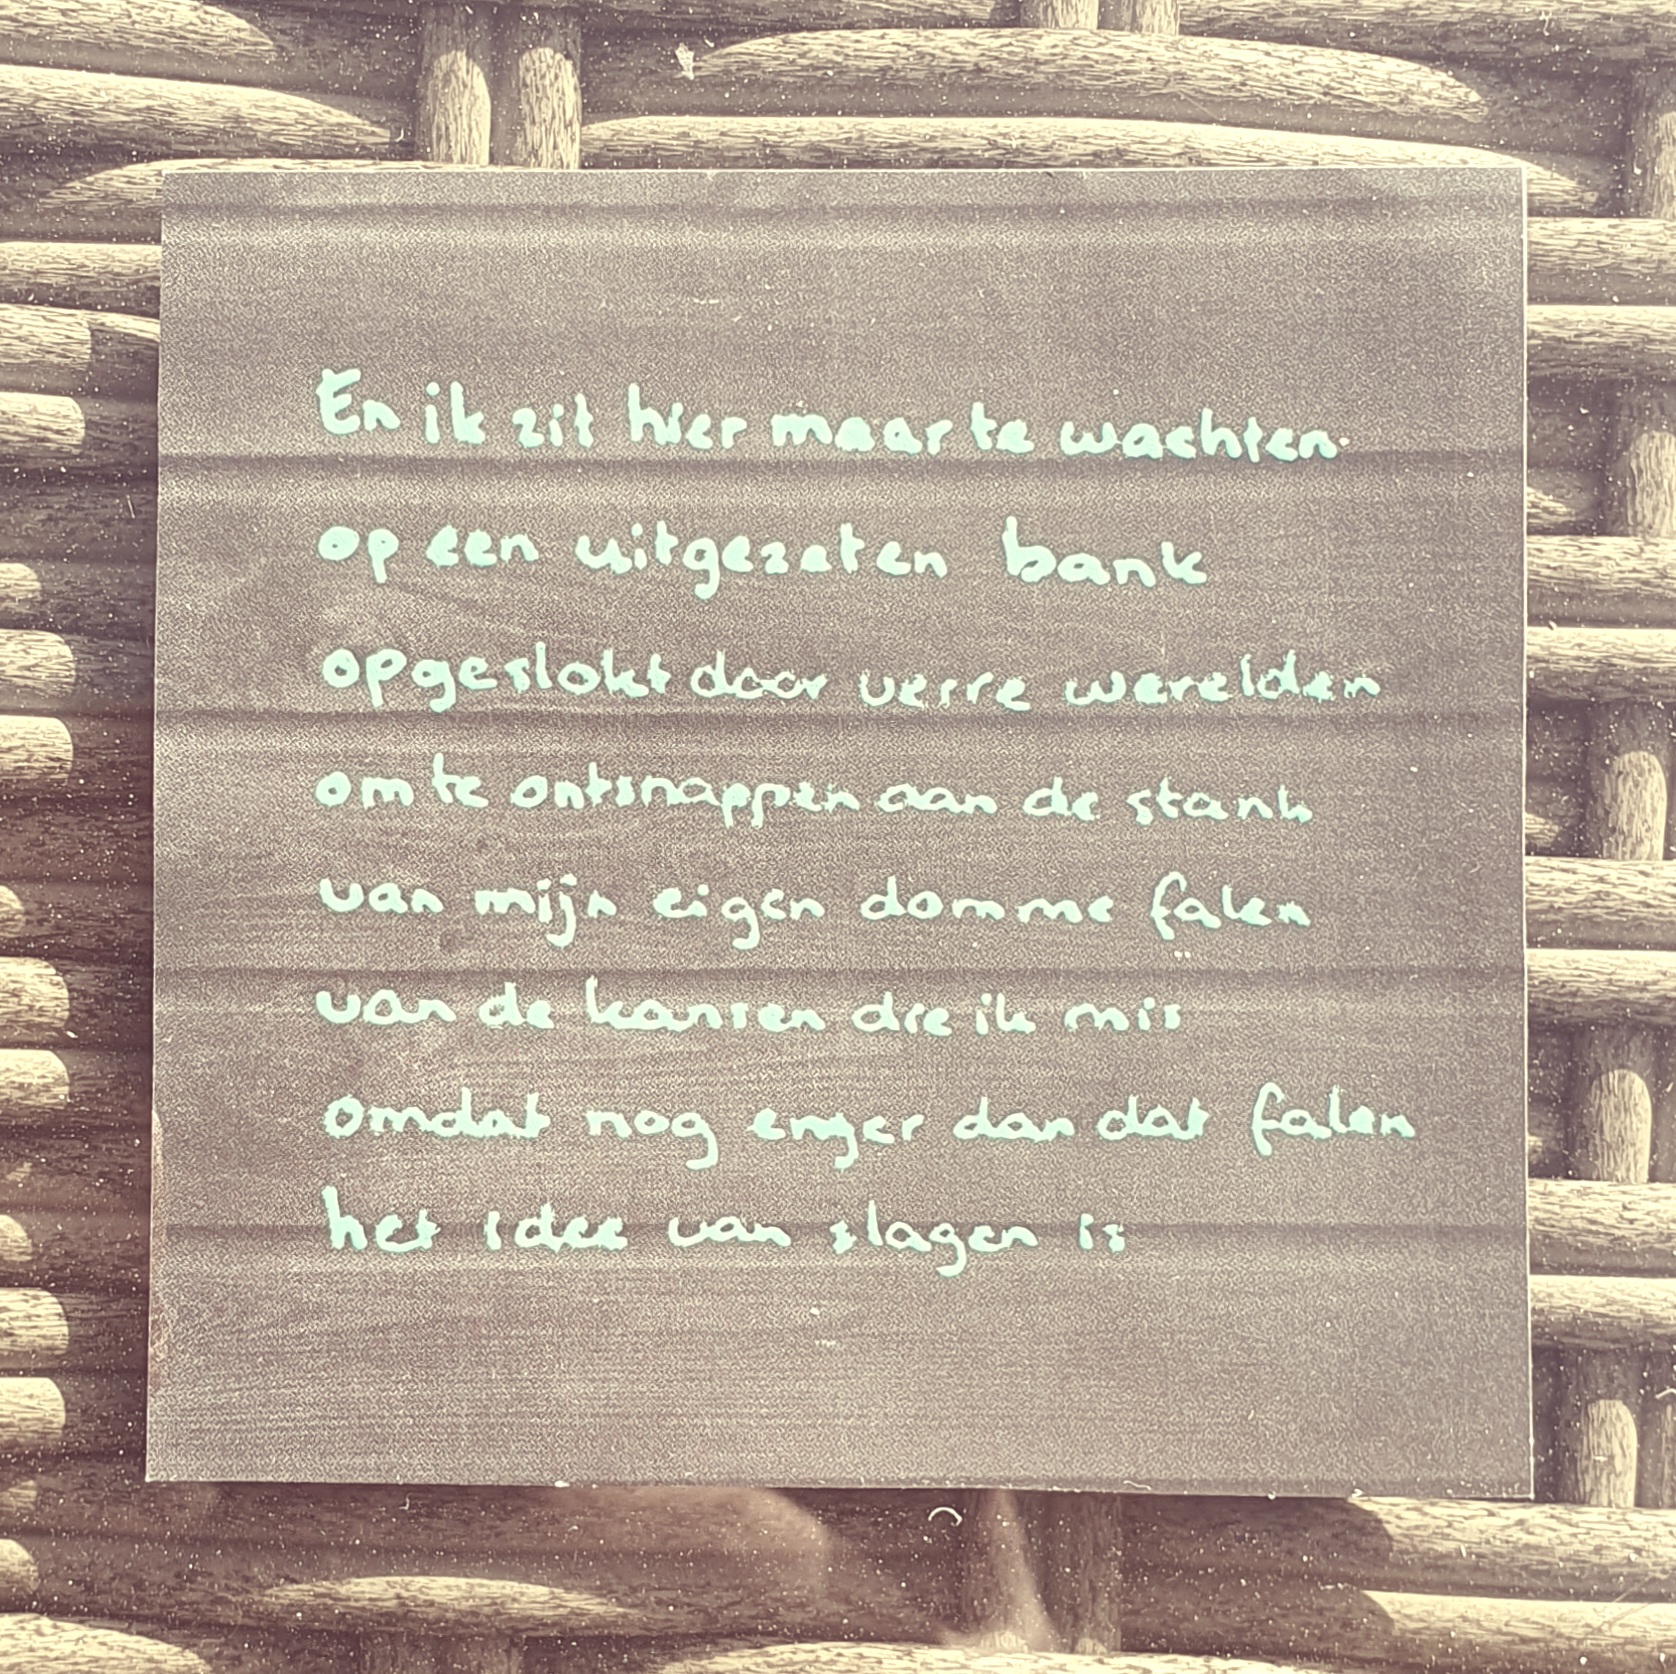 En ik zit hier maar te wachten
op een uitgezeten bank
opgeslokt door verre werelden
om te ontsnappen aan de stank
van mijn eigen domme falen
van de kansen die ik mis
omdat nog enger dan dat falen
het idee van slagen is